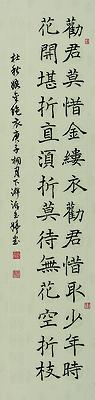 勸君莫惜金縷衣勸君惜取少年時
花開堪折直湏折莫待無花空折枝
杜秋娘金縷衣庚子桐月下澣書